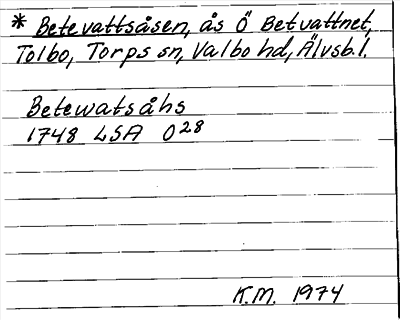 * Betevattsåsen, ås Ö Betvattnet,
Tolbo, Torps sn, Valbo hd, Älvsb.l.
Betewatsåhs
1748 LSA O28
K.M. 1974